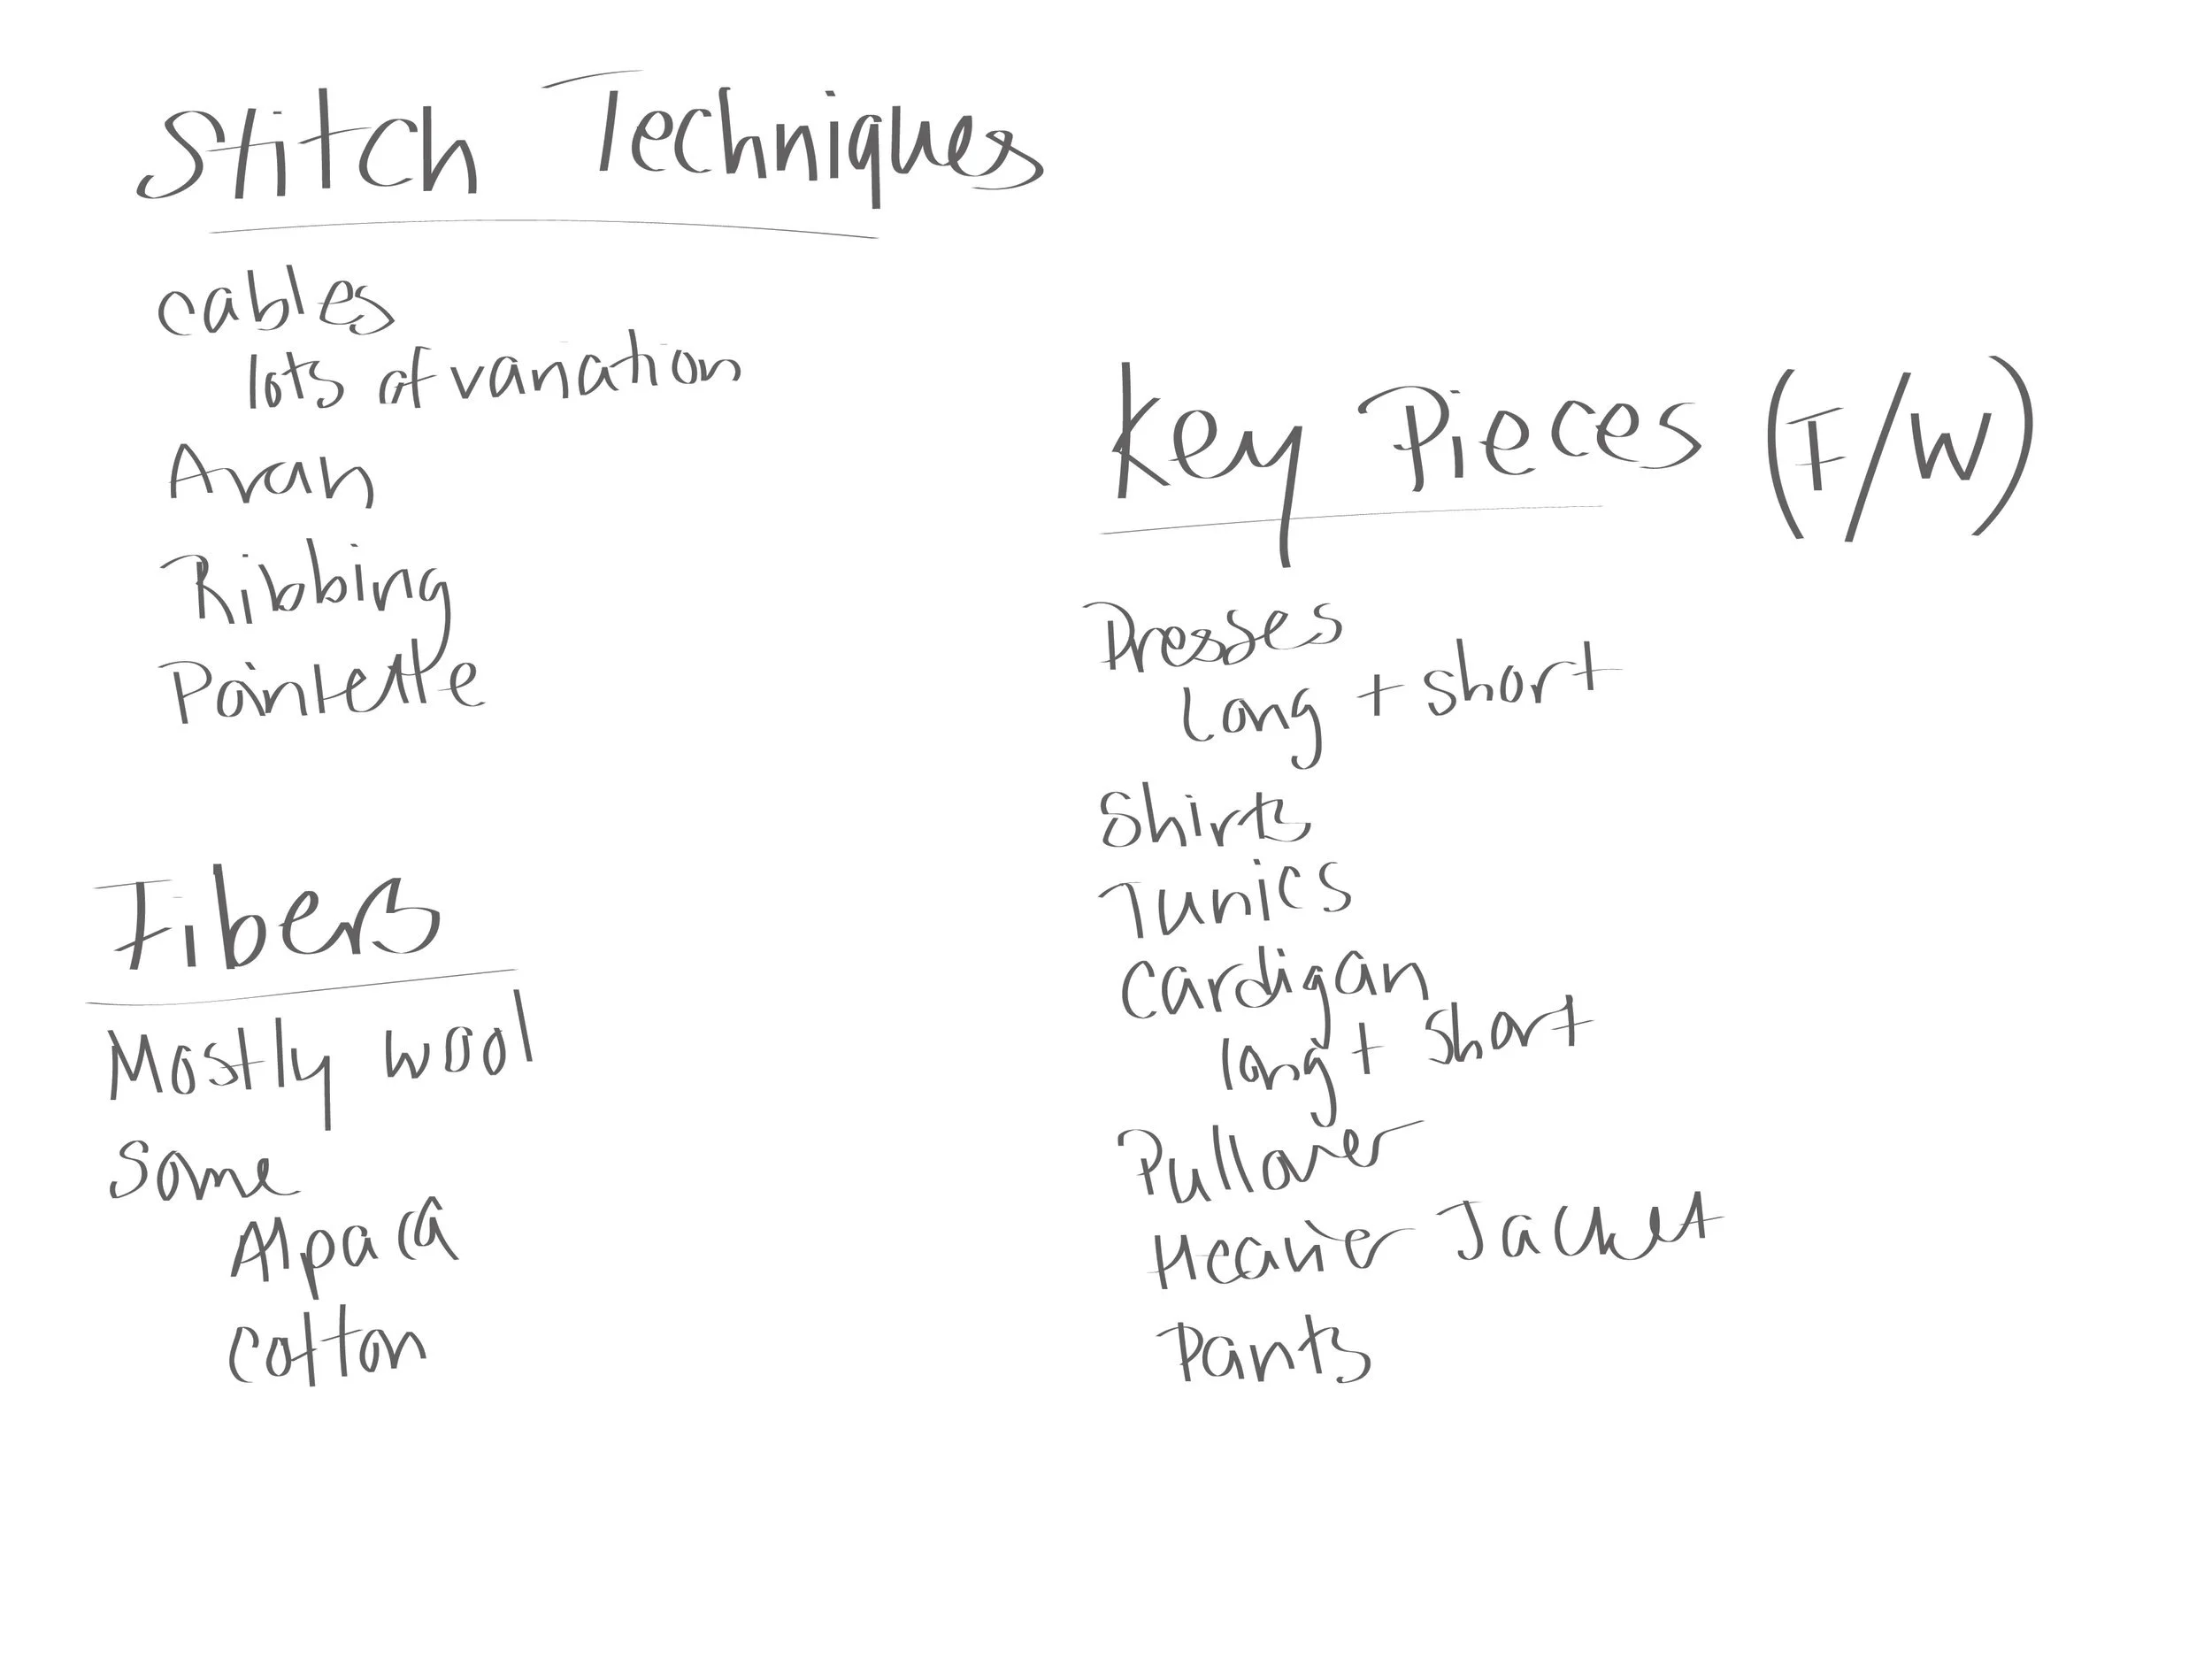 Stitch Techniques
cables
lots of variation
Aran
Ribbing
Pointelle
Fibers
Mostly wool
Some
Alpaca
Cotton
Key Pieces (F/W)
Dresses
Long + short
Shirts
Tunics
Cardigan
long + short
Pullover
Heavier Jacket
Pants